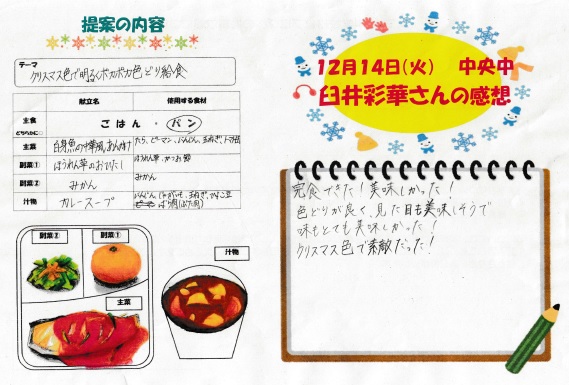 提案の内容
テーマ
クリスマス色で明るくポカポカ色どり給食
献立名 使用する食材
主食 ごはん・パン
どちらかに○
主菜 白身魚の中華風あんかけ たら、ピーマン、にんじん、玉ねぎ、トマト缶
副菜① ほうれん草のおひたし ほうれん草・かつお節
副菜② みかん みかん
汁物 カレースープ にんじん、じゃがいも、玉ねぎ
副菜②
副菜①
汁物
主菜
12月14日(火) 中央中
臼井彩華さんの感想
完食できた!美味しかった!
色どりが良く、見た目も美味しそうで
味もとても美味しかった!
クリスマス色で素敵だった!